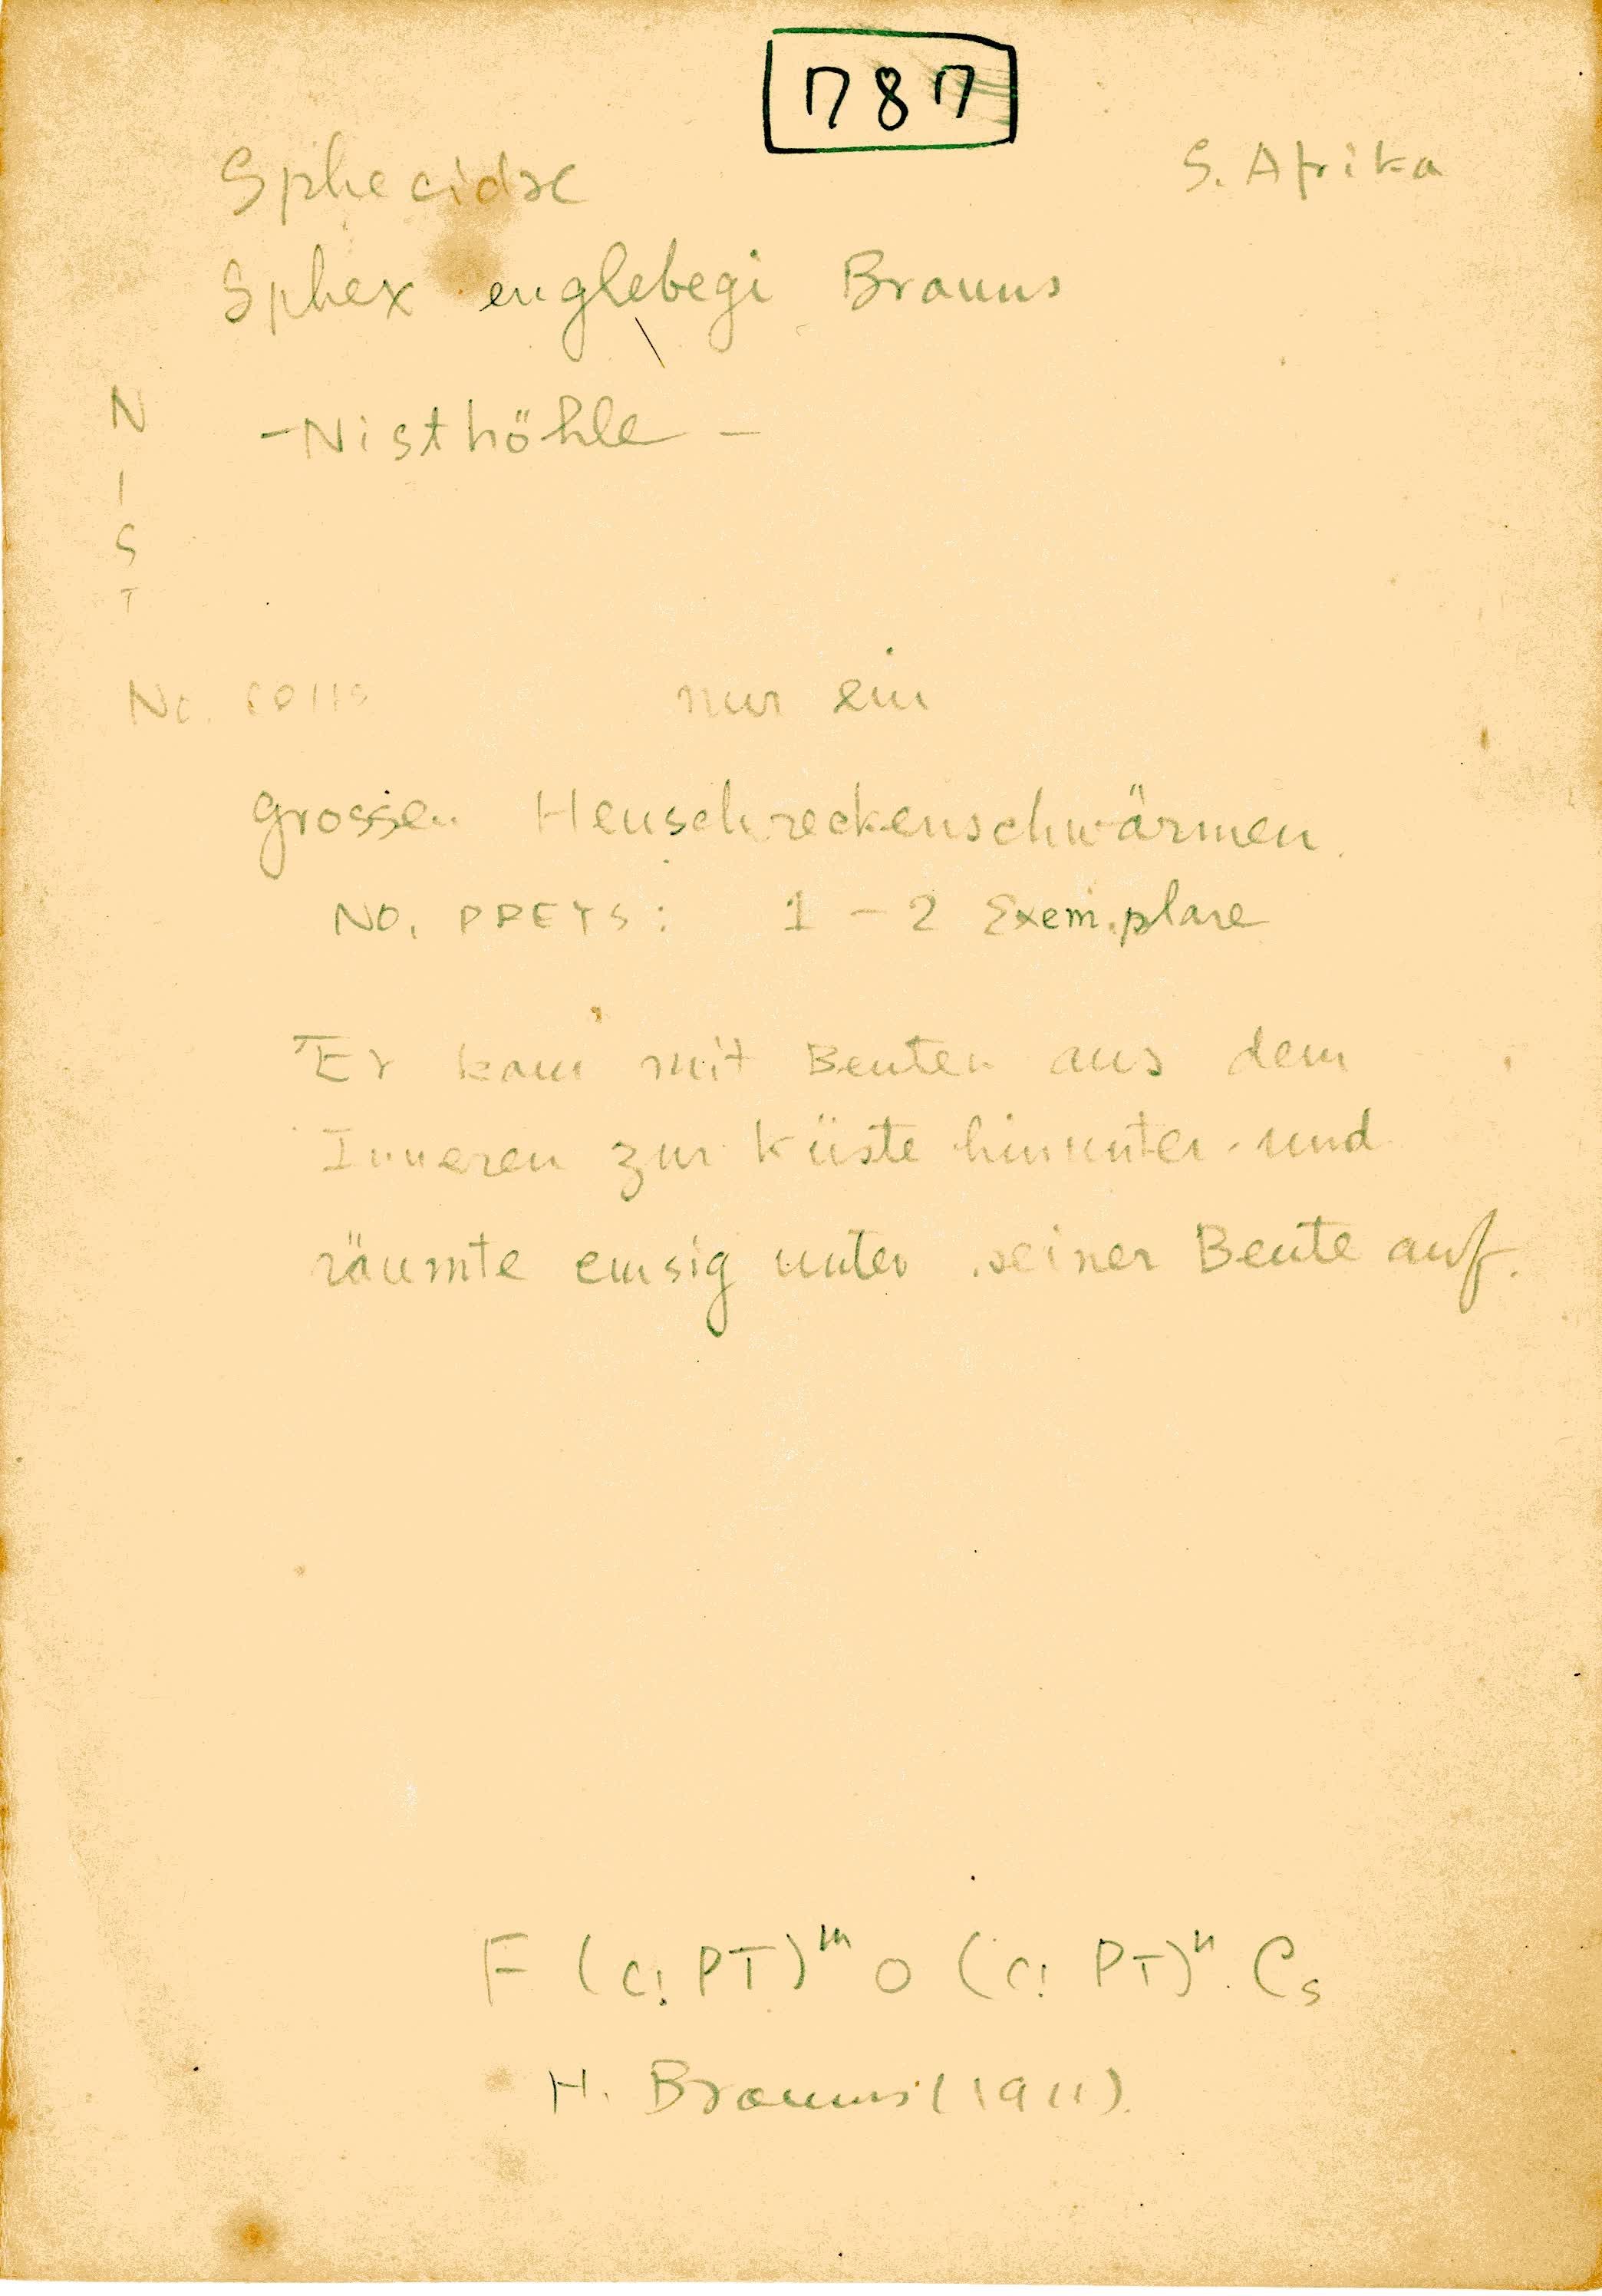 787
Sphecidae S. Afrika
Sphex englebegi Brauns
NIST
-Nisthöhle-
No. nur ein
grossen Heuschreckenschwärmen.
NO. PREYS: 1-2 Exemplare
Er kam mit Beuten aus dem
Inneren zur Küste hinunter und
räumte emsig unter seiner Beute auf.
F (C! PT)ᵐ O (C! PT)ⁿ Cs
H. Brauns (1911).